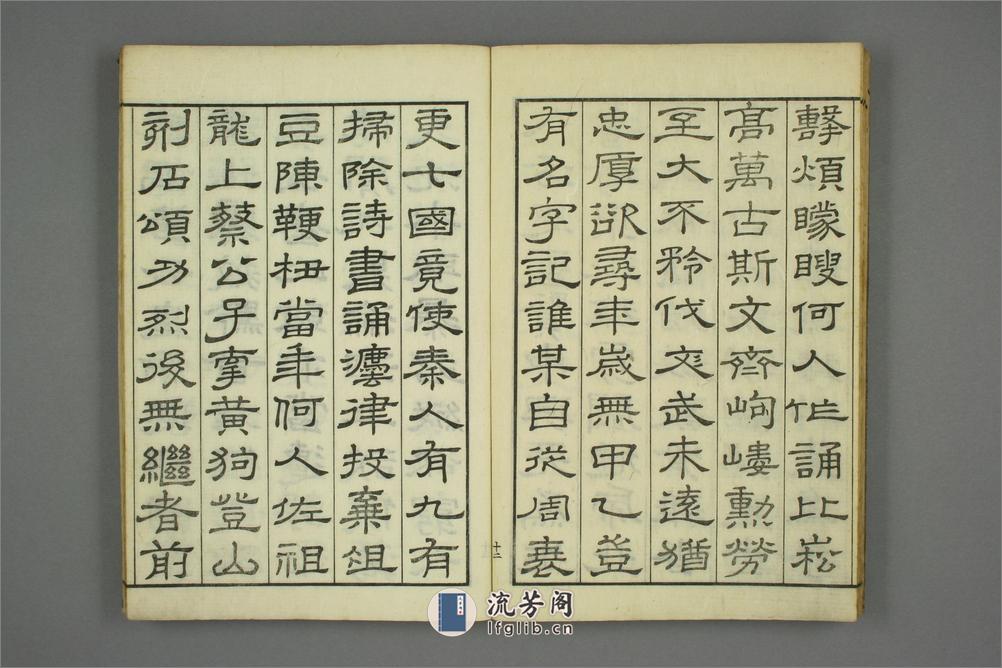 擊煩矇瞍何人作誦比崧
高萬古斯文齊岣嶁勳勞
至大不矜伐文武未遠猶
忠厚欲尋年歲無甲乙豈
有名字記誰某自從周衰
十二
更七國竟使秦人有九有
掃除詩書誦灋律投棄俎
豆陳鞭杻當年何人佐祖
龍上蔡公子牽黃狗登山
刻石頌功烈後無繼者前
流芳阁
lfglib.cn